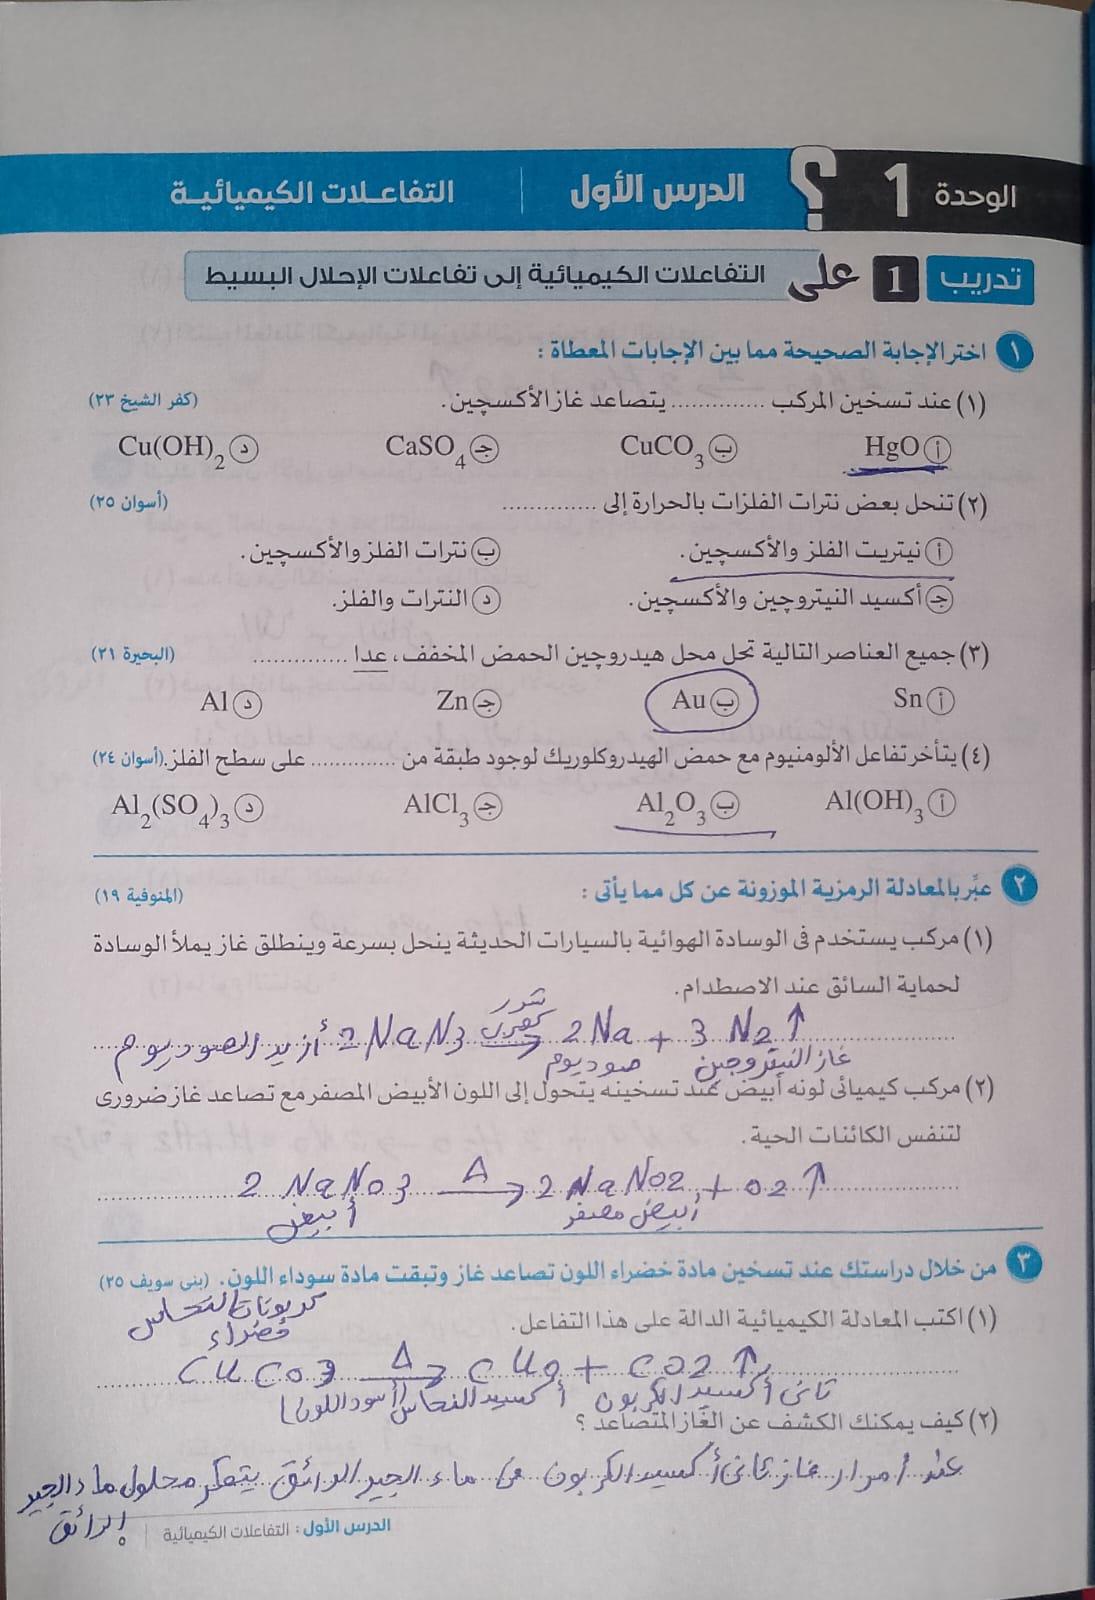 الوحدة 1 ؟ الدرس الأول | التفاعلات الكيميائية
تدريب 1 على التفاعلات الكيميائية إلى تفاعلات الإحلال البسيط
١ اختر الإجابة الصحيحة مما بين الإجابات المعطاة :
(١) عند تسخين المركب .............. يتصاعد غاز الأكسچين. (كفر الشيخ ٢٣)
أ HgO ب CuCO3 جـ CaSO4 د Cu(OH)2
(٢) تنحل بعض نترات الفلزات بالحرارة إلى .............. (أسوان ٢٥)
أ نيتريت الفلز والأكسچين. ب نترات الفلز والأكسچين.
جـ أكسيد النيتروچين والأكسچين. د النترات والفلز.
(٣) جميع العناصر التالية تحل محل هيدروچين الحمض المخفف، عدا .............. (البحيرة ٢١)
أ Sn ب Au جـ Zn د Al
(٤) يتأخر تفاعل الألومنيوم مع حمض الهيدروكلوريك لوجود طبقة من .............. على سطح الفلز. (أسوان ٢٤)
أ Al(OH)3 ب Al2O3 جـ AlCl3 د Al2(SO4)3
٢ عبِّر بالمعادلة الرمزية الموزونة عن كل مما يأتى : (المنوفية ١٩)
(١) مركب يستخدم فى الوسادة الهوائية بالسيارات الحديثة ينحل بسرعة وينطلق غاز يملأ الوسادة
لحماية السائق عند الاصطدام.
شرر
كهربى
أزيد الصوديوم 2NaN3 → 2Na + 3N2↑
صوديوم غاز النيتروجين
(٢) مركب كيميائى لونه أبيض عند تسخينه يتحول إلى اللون الأبيض المصفر مع تصاعد غاز ضرورى
لتنفس الكائنات الحية.
2 NaNO3 Δ→ 2 NaNO2 + O2↑
أبيض أبيض مصفر
٣ من خلال دراستك عند تسخين مادة خضراء اللون تصاعد غاز وتبقت مادة سوداء اللون. (بنى سويف ٢٥)
كربونات النحاس
(١) اكتب المعادلة الكيميائية الدالة على هذا التفاعل.
خضراء
CuCO3 Δ→ CuO + CO2↑
أكسيد النحاس (أسود اللون) ثانى أكسيد الكربون
(٢) كيف يمكنك الكشف عن الغاز المتصاعد ؟
عند إمرار غاز ثانى أكسيد الكربون فى ماء الجير الرائق يتعكر محلول ماء الجير
الرائق
الدرس الأول : التفاعلات الكيميائية